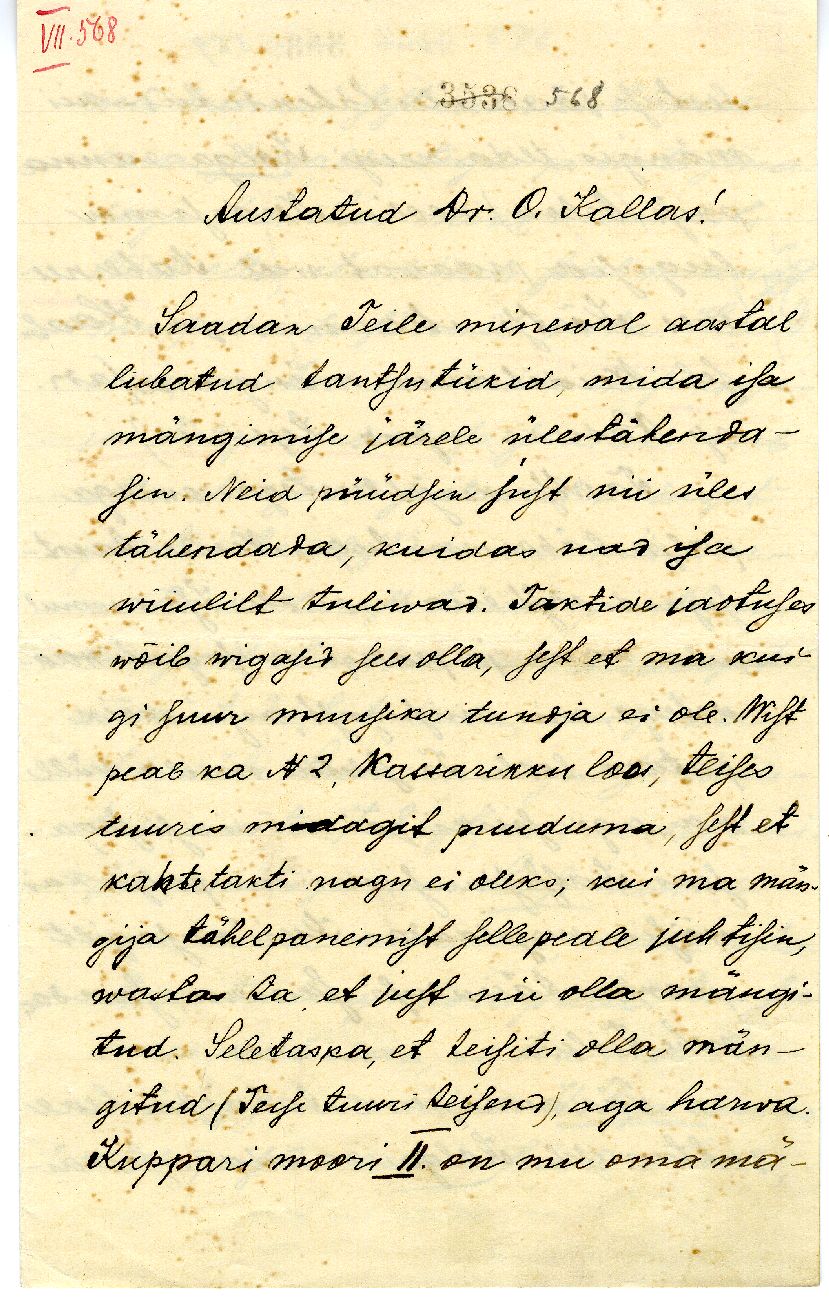 VII. 568
3538 568
Austatud Dr. O. Kallas!
Saadan Teile minewal aastal
lubatud tantsutükid, mida isa
mängimise järele ülestähenda-
sin. Neid püüdsin just nii üles
tähendada, kuidas nad isa
wiiulilt tuliwad. Taktide jaotuses
wõib wigasid sees olla, sest et ma kui-
gi suur muusika tundja ei ole. Wist
peab ka № 2, Kassarikku loos, teises
tuuris midagit puuduma, sest et
kahte takti nagu ei oleks; kui ma män-
gija tähelpanemist selle peale juhtisin,
wastas ta et just nii olla mängi-
tud. Seletas ka, et teisiti olla män-
gitud (Teise tuuri teisend), aga harwa.
Kuppari moori II. on mu oma mä-